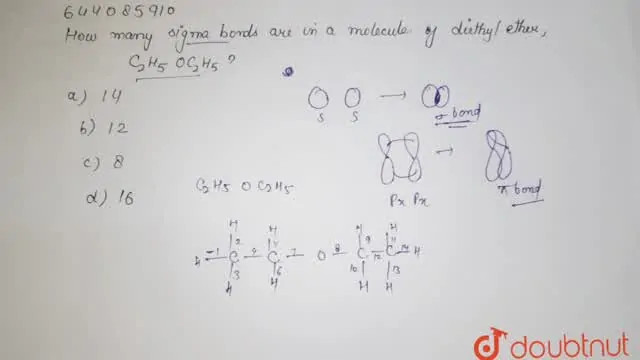 644085910
How many sigma bonds are in a molecule of diethyl ether,
C2H5 OC2H5 ?
a) 14
b) 12
c) 8
d) 16
S S
σ bond
Px Px
π bond
C2H5 O C2H5
H H H H
2 9 11
H 1 C C 7 O 8 C 12 C 14 H
3 6 10 13
H H H H
doubtnut